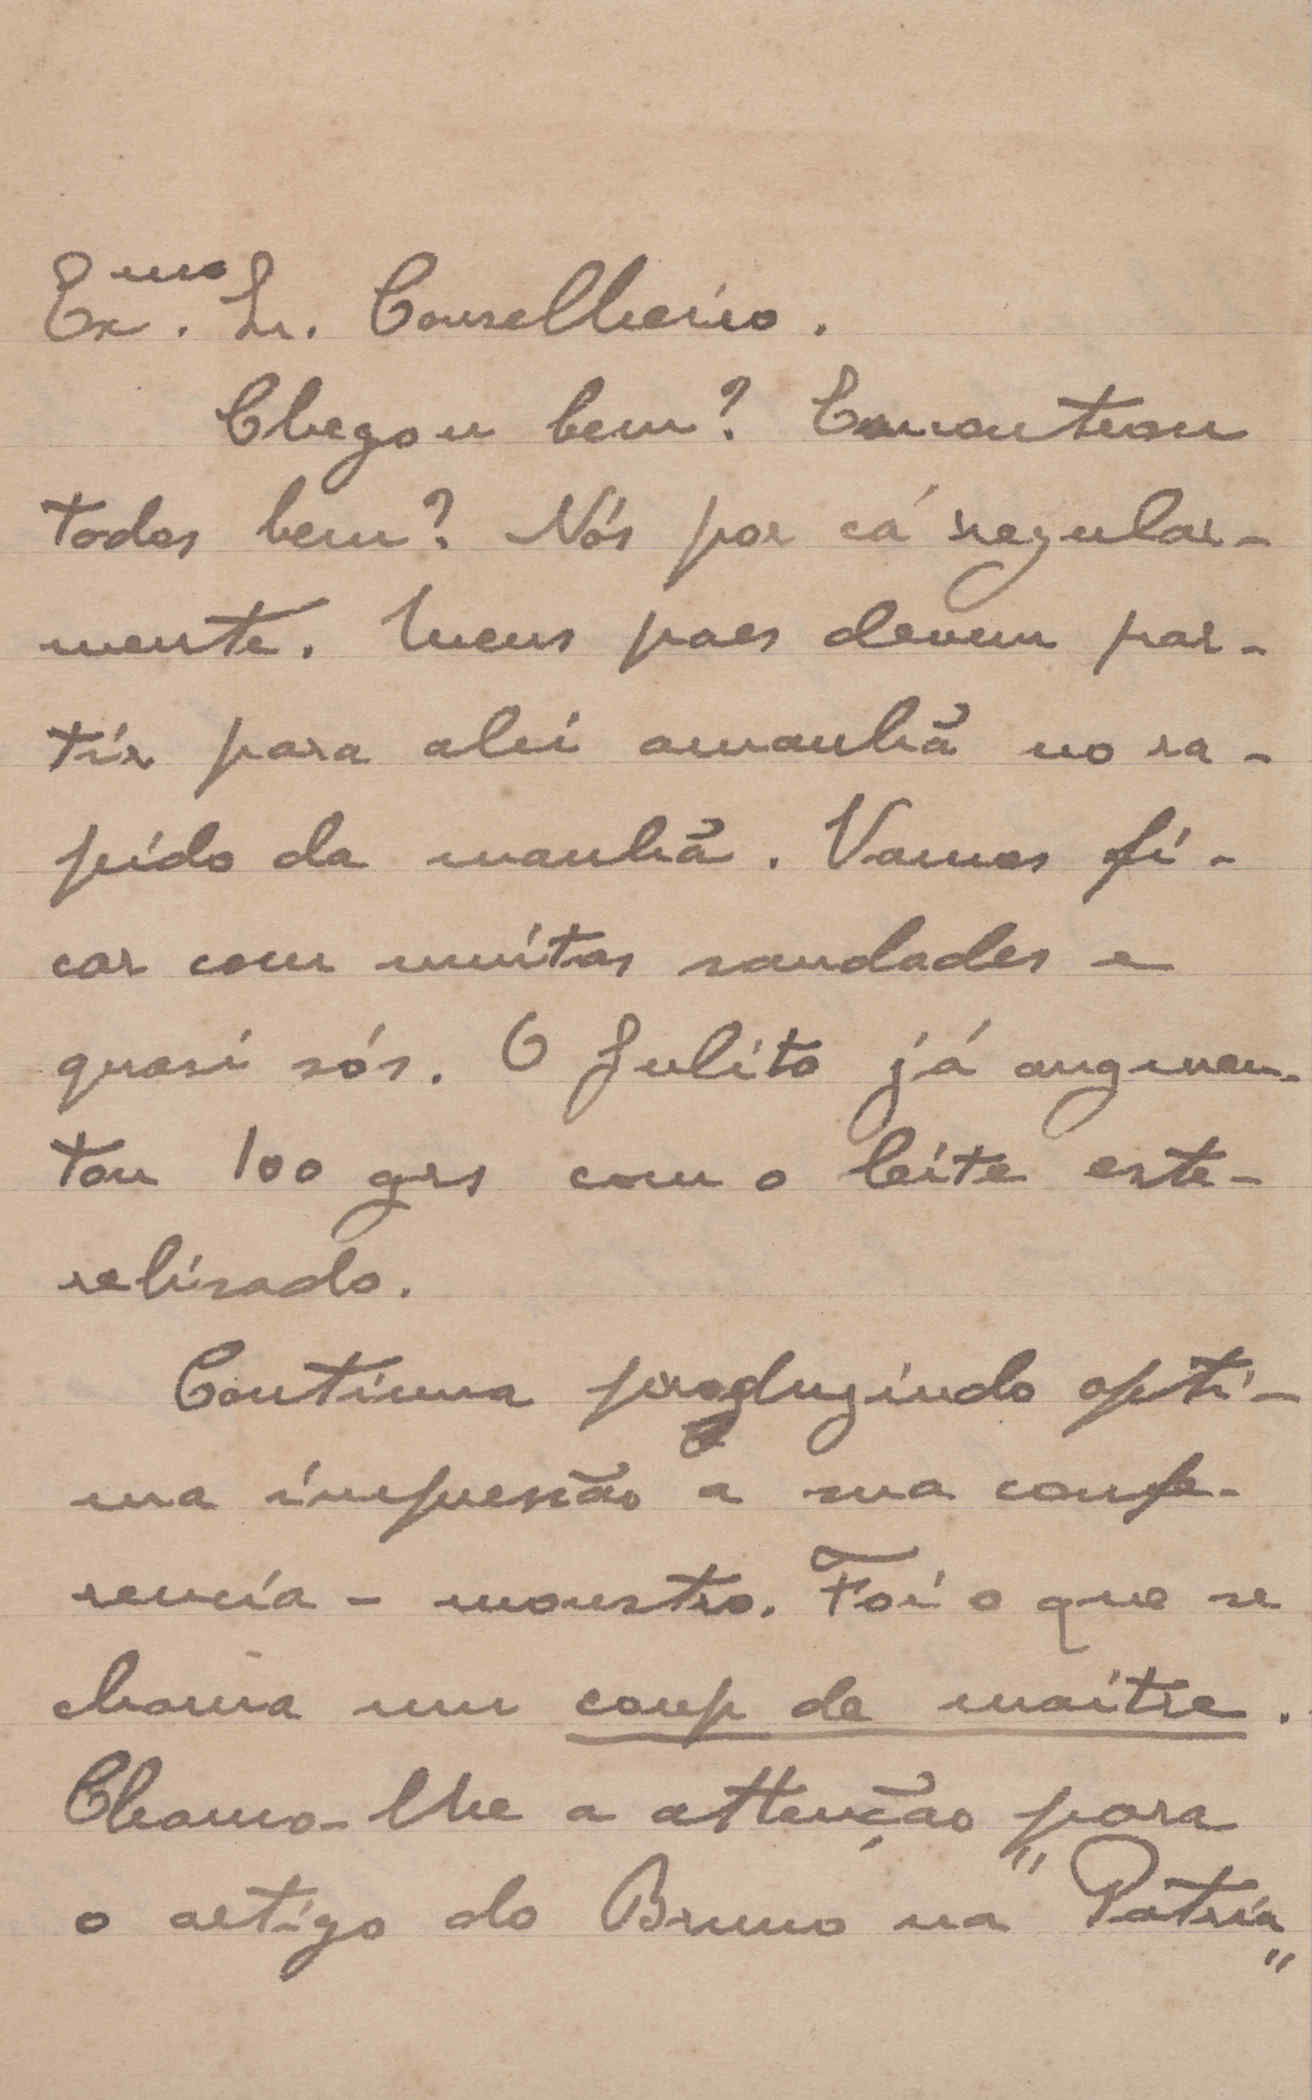 Ex.mo Sr. Conselheiro.
Chegou bem? Encontrou
todos bem? Nós por cá regular-
mente. Meus paes devem par-
tir para ahi amanhã no ra-
pido da manhã. Vamos fi-
car com muitas saudades e
quasi sós. O Julito já augmen-
tou 100 grs com o leite este-
relisado.
Continua produzindo opti-
ma impressão a sua confe-
rencia - monstro. Foi o que se
chama um coup de maitre.
Chamo-lhe a attenção para
o artigo do Bruno na "Patria"